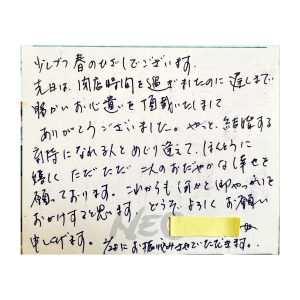 少しづつ春のひざしでございます。
先日は、閉店時間を過ぎましたのに遅しまで
暖かいお心遣いを頂戴いたしまして
ありがとうございました。やっと、結婚する
気持になれる人とめぐり逢えて、ほんとうに
嬉しく ただただ 二人のおだやかな幸せを
願っております。これからも 何かとお
おかけすると思います どうぞ、よろしくお願い
申し上げます。2/28にお振り込みさせていただきます。
NEO